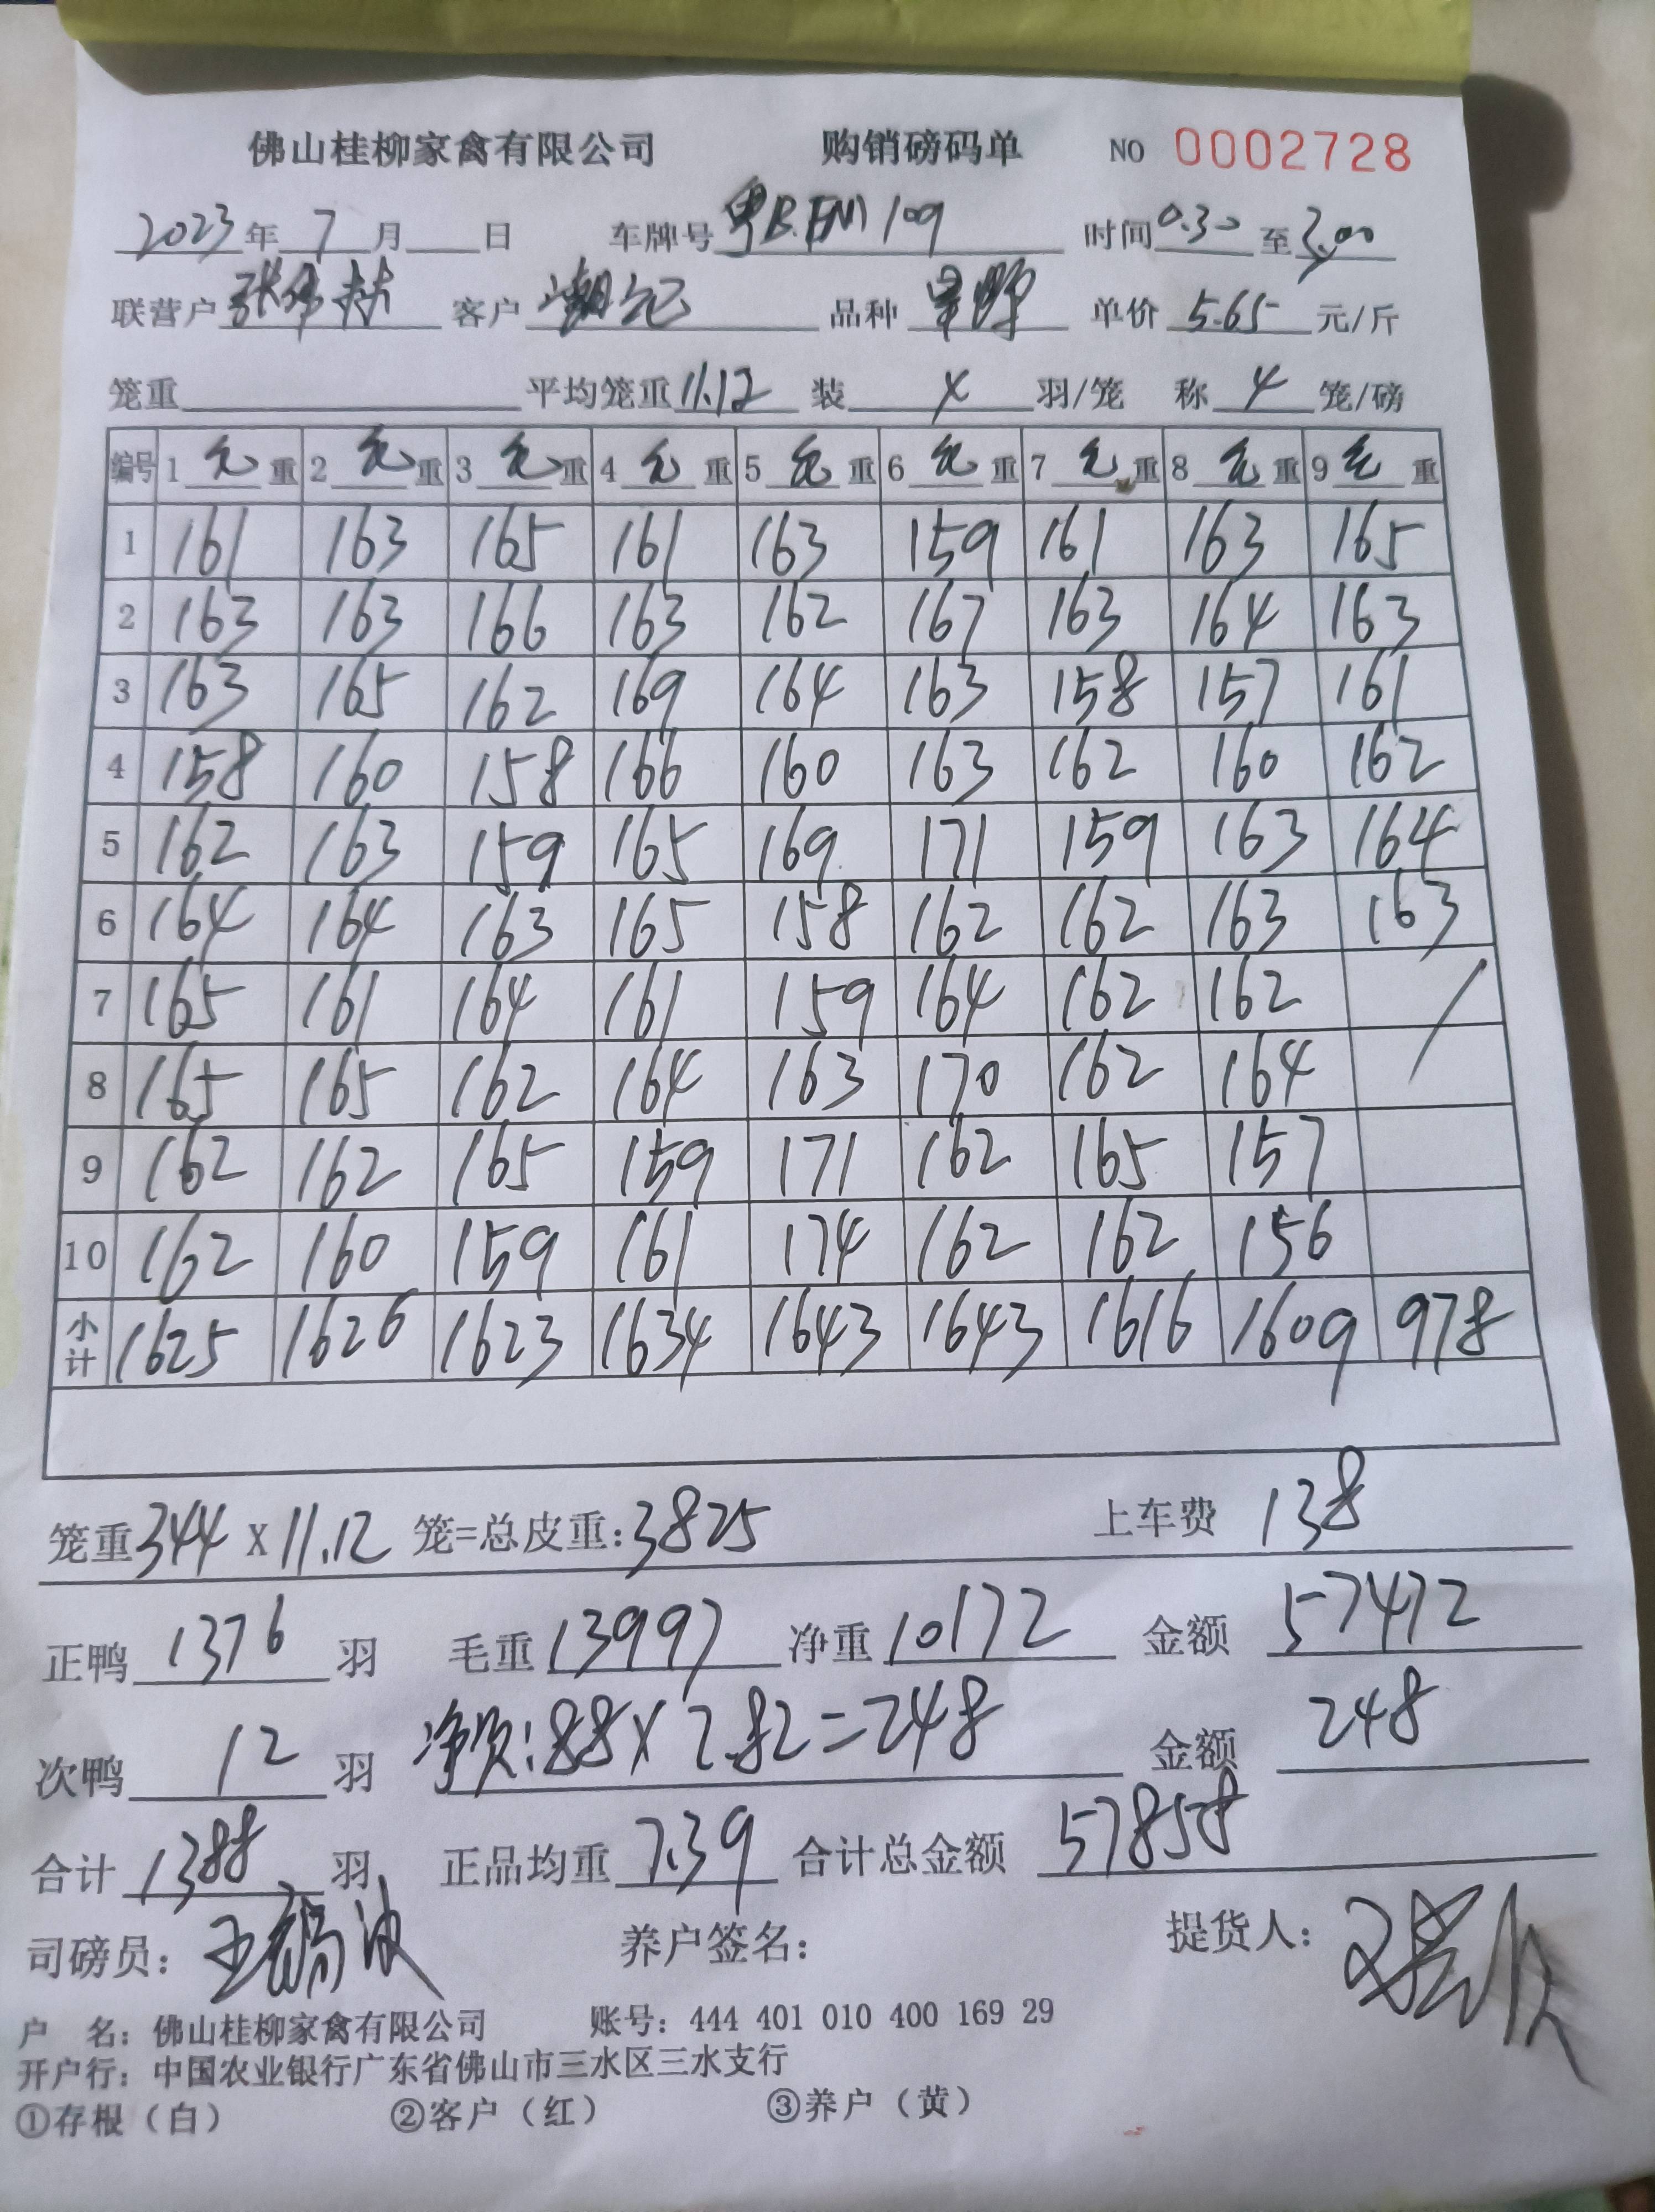 佛山桂柳家禽有限公司 购销磅码单 NO 0002728
2023年7月 日 车牌号 粤B.FM109 时间0.30至3.00
联营户 张 林 客户 潮记 品种 单价 5.65 元/斤
笼重 平均笼重11.12 装 4 羽/笼 称 4 笼/磅
编号 1 毛重 2 毛重 3 毛重 4 毛重 5 毛重 6 毛重 7 毛重 8 毛重 9 毛重
1 161 163 165 161 163 159 161 163 165
2 163 163 166 163 162 167 163 164 163
3 163 165 162 169 164 163 158 157 161
4 158 160 158 166 160 163 162 160 162
5 162 163 159 165 169 171 159 163 164
6 164 164 163 165 158 162 162 163 163
7 165 161 164 161 159 164 162 162 /
8 165 165 162 164 163 170 162 164
9 162 162 165 159 171 162 165 157
10 162 160 159 161 174 162 162 156
小计 1625 1626 1623 1634 1643 1643 1616 1609 978
笼重344 X 11.12 笼=总皮重:3825 上车费 138
正鸭 1376 羽 毛重13997 净重10172 金额 57472
次鸭 12 羽 净次:88X2.82=248 金额 248
合计 1388 羽 正品均重 7.39 合计总金额 57858
司磅员: 王 波 养户签名: 提货人:
户 名: 佛山桂柳家禽有限公司 账号: 444 401 010 400 169 29
开户行: 中国农业银行广东省佛山市三水区三水支行
①存根（白） ②客户（红） ③养户（黄）